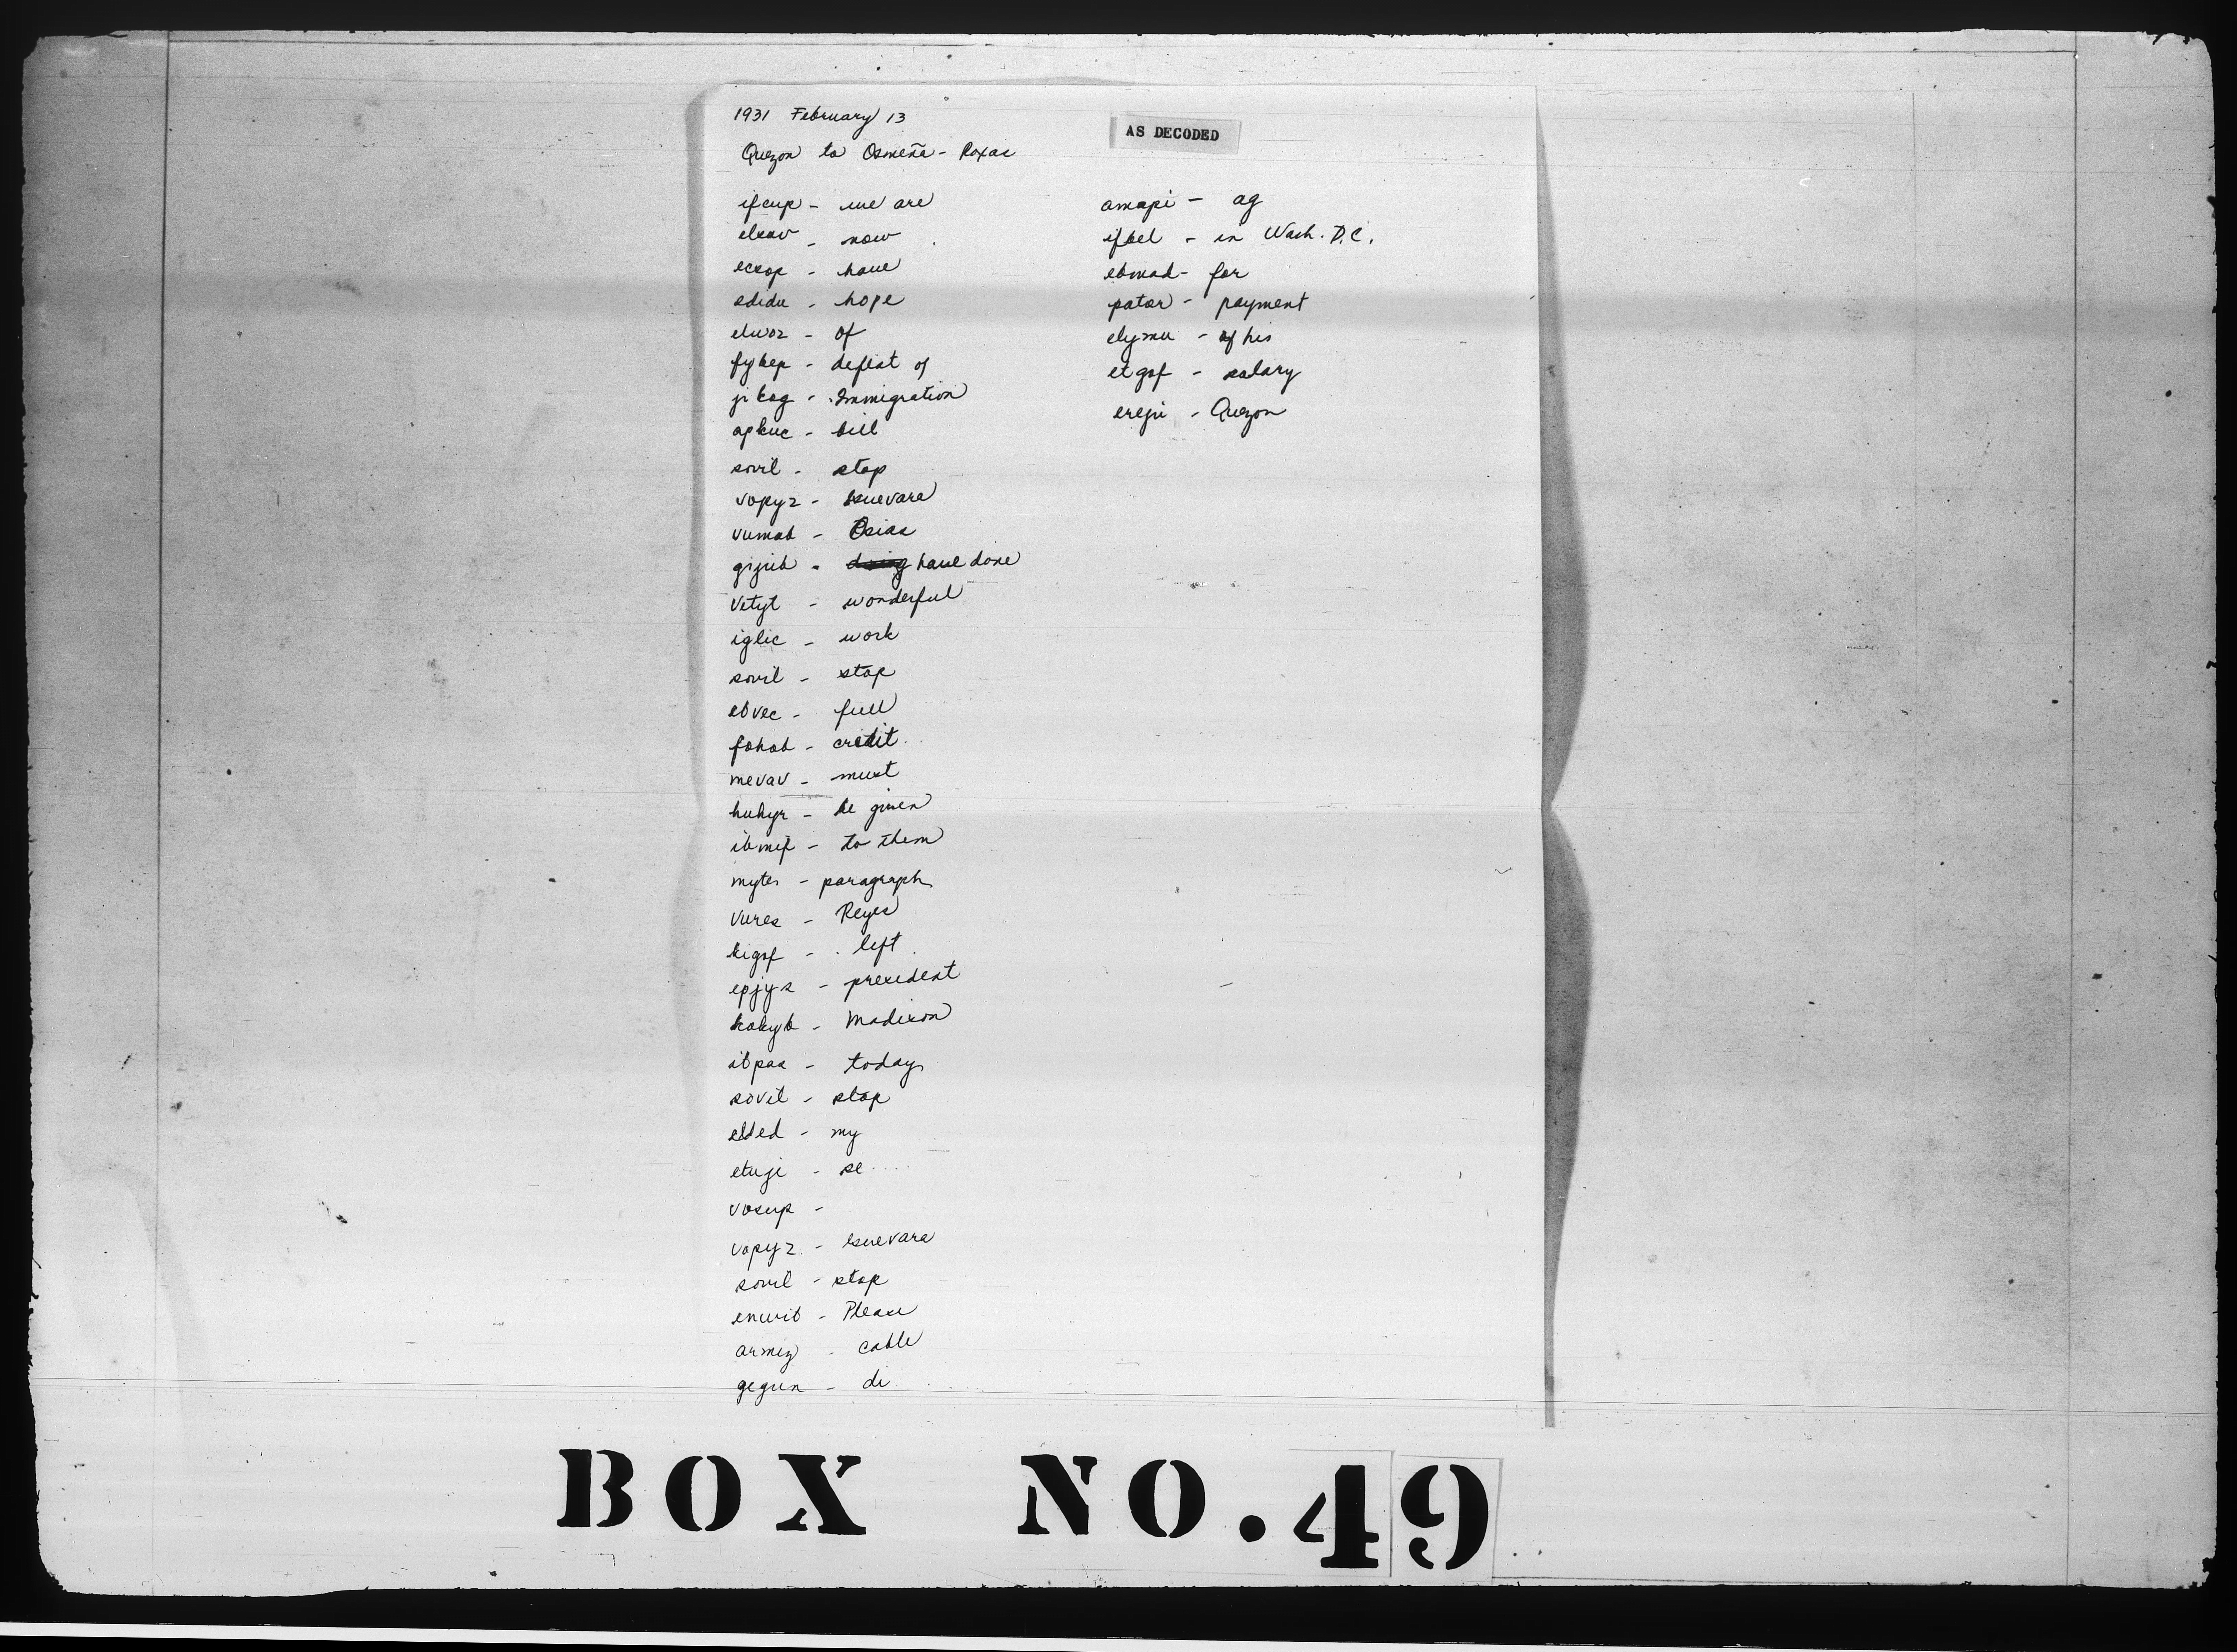 1931 February 13
AS DECODED
Quezon to Osmeña - Roxas
ifcup - we are
elxav - now
ecsop - have
edidu - hope
eluoz - of
fykep - defeat of
jikog - Immigration
apkuc - bill
sovil - stop
vopyz - Guevara
vumab - Osias
gijub - have done
vetyt - wonderful
iglic - work
sovil - stop
ebvec - full
fohab - credit
mevav - must
huhyr - be given
ibmif - to them
myter - paragraph
vures - Reyes
kigof - left
epjys - president
kokyb - Madison
ibpas - today
sovil - stop
elded - my
etuji - se
vosup -
vopyz - Guevara
sovil - stop
enwit - Please
armez - cable
gegun - di
amapi - ag
ifbel - in Wash. D.C.
ebmad - for
pator - payment
elymu - of his
etgof - salary
ereju - Quezon
BOX NO. 49